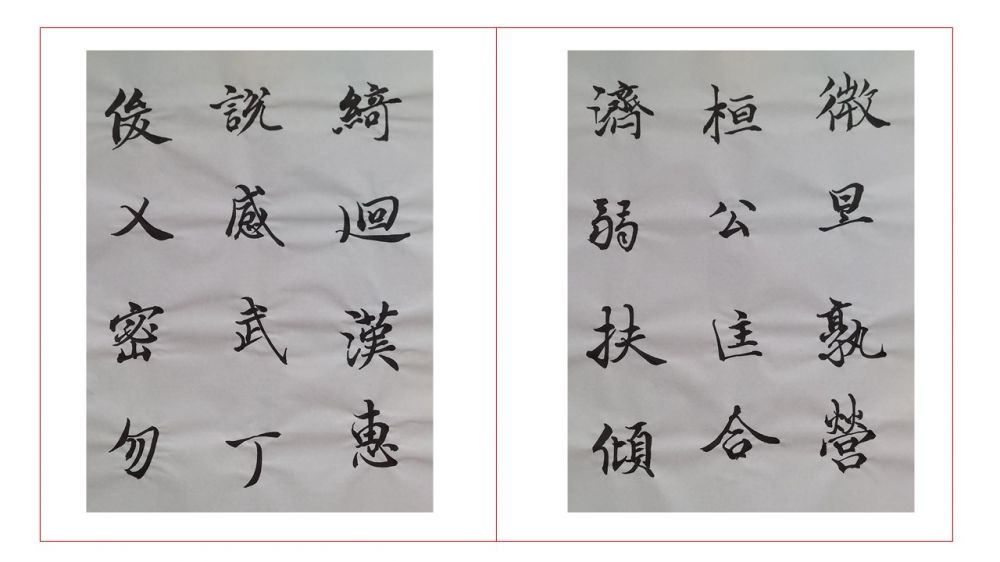 微旦孰營
桓公匡合
濟弱扶傾
綺迴漢惠
說感武丁
俊乂密勿